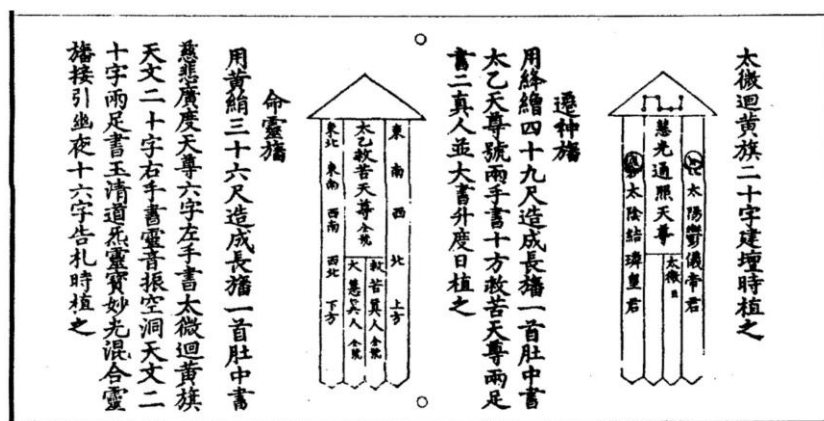 太微迴黄旗二十字建壇時植之
太陽鬱儀帝君
慧光通照天尊
太微
太陰結璘皇君
遷神旛
用絳繒四十九尺造成長旛一首肚中書
太乙天尊號兩手書十方救苦天尊兩足
書二真人並大書升度日植之
東 南 西 北 上方
太乙救苦天尊全號
救苦真人全號
大慧真人全號
東北 東南 西南 西北 下方
命靈旛
用黄絹三十六尺造成長旛一首肚中書
慈悲廣度天尊六字左手書太微迴黄旗
天文二十字右手書靈音振空洞天文二
十字兩足書玉清道炁靈寳妙光混合靈
旛接引幽夜十六字告札時植之